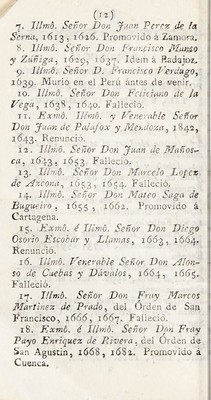 (12)
7. Illmô. Señor Don Juan Perez de la
Serna, 1613, 1626. Promovido á Zamora.
8. Illmô. Señor Don Francisco Manso
y Zúñiga, 1629, 1637. Idem á Badajoz.
9. Illmô. Señor D. Francisco Verdugo,
1639. Murió en el Perú ántes de venir.
10. Illmô. Señor Don Feliciano de la
Vega, 1638, 1640. Falleció.
11. Exmô. Illmô. y Venerable Señor
Don Juan de Palafox y Mendoza, 1642,
643. Renunció.
12. Illmô. Señor Don Juan de Maños-
ca, 1643, 1653. Falleció.
13. Illmô. Señor Don Marcelo Lopez
de Azcona, 1653, 1654. Falleció.
14. Illmô. Señor Don Mateo Saga de
Bugueiro, 1655, 1662. Promovido á
Cartagena.
15. Exmô. é Illmô. Señor Don Diego
Osorio Escobar y Llamas, 1663, 1664.
Renunció.
16. Illmô. Venerable Señor Don Alon-
so de Cuebas y Dávalos, 1664, 1665.
Falleció.
17. Illmô. Señor Don Fray Marcos
Martinez de Prado, del Orden de San
Francisco, 1666, 1667. Falleció.
18. Exmô. é Illmô. Señor Don Fray
Payo Enriquez de Rivera, del Orden de
San Agustin, 1668, 1682. Promovido á
Cuenca.